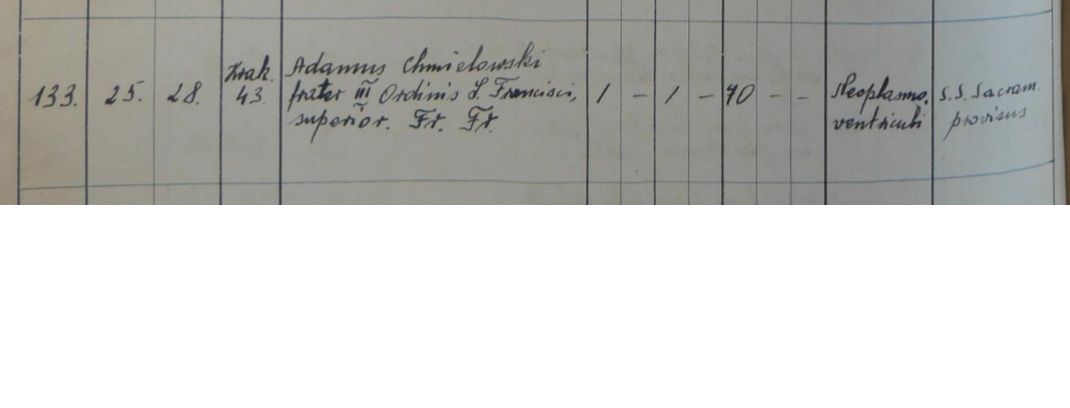 133. 25. 28. Krak. 43. Adamus Chmielowski
frater III Ordinis S. Francisci,
superior. Fr. Fr. 1 - 1 - 70 - - Neoplasma.
ventriculi S.S. Sacram.
provisus